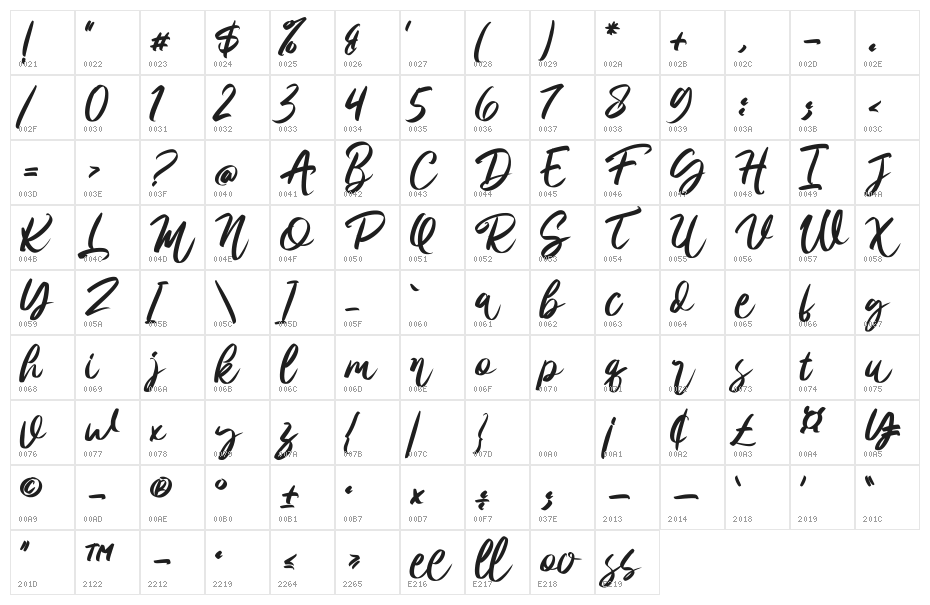 ! " # $ % & ' ( ) * + , - .
0021 0022 0023 0024 0025 0026 0027 0028 0029 002A 002B 002C 002D 002E
/ 0 1 2 3 4 5 6 7 8 9 : ; <
002F 0030 0031 0032 0033 0034 0035 0036 0037 0038 0039 003A 003B 003C
= > ? @ A B C D E F G H I J
003D 003E 003F 0040 0041 0042 0043 0044 0045 0046 0047 0048 0049 004A
K L M N O P Q R S T U V W X
004B 004C 004D 004E 004F 0050 0051 0052 0053 0054 0055 0056 0057 0058
Y Z [ \ ] _ ` a b c d e f g
0059 005A 005B 005C 005D 005F 0060 0061 0062 0063 0064 0065 0066 0067
h i j k l m n o p q r s t u
0068 0069 006A 006B 006C 006D 006E 006F 0070 0071 0072 0073 0074 0075
v w x y z { | } ¡ ¢ £ ¤ ¥
0076 0077 0078 0079 007A 007B 007C 007D 00A0 00A1 00A2 00A3 00A4 00A5
© - ® ° ± · × ÷ ; – — ‘ ’ “
00A9 00AD 00AE 00B0 00B1 00B7 00D7 00F7 037E 2013 2014 2018 2019 201C
” ™ − ∙ ≤ ≥ ee ll oo ss
201D 2122 2212 2219 2264 2265 E216 E217 E218 E219